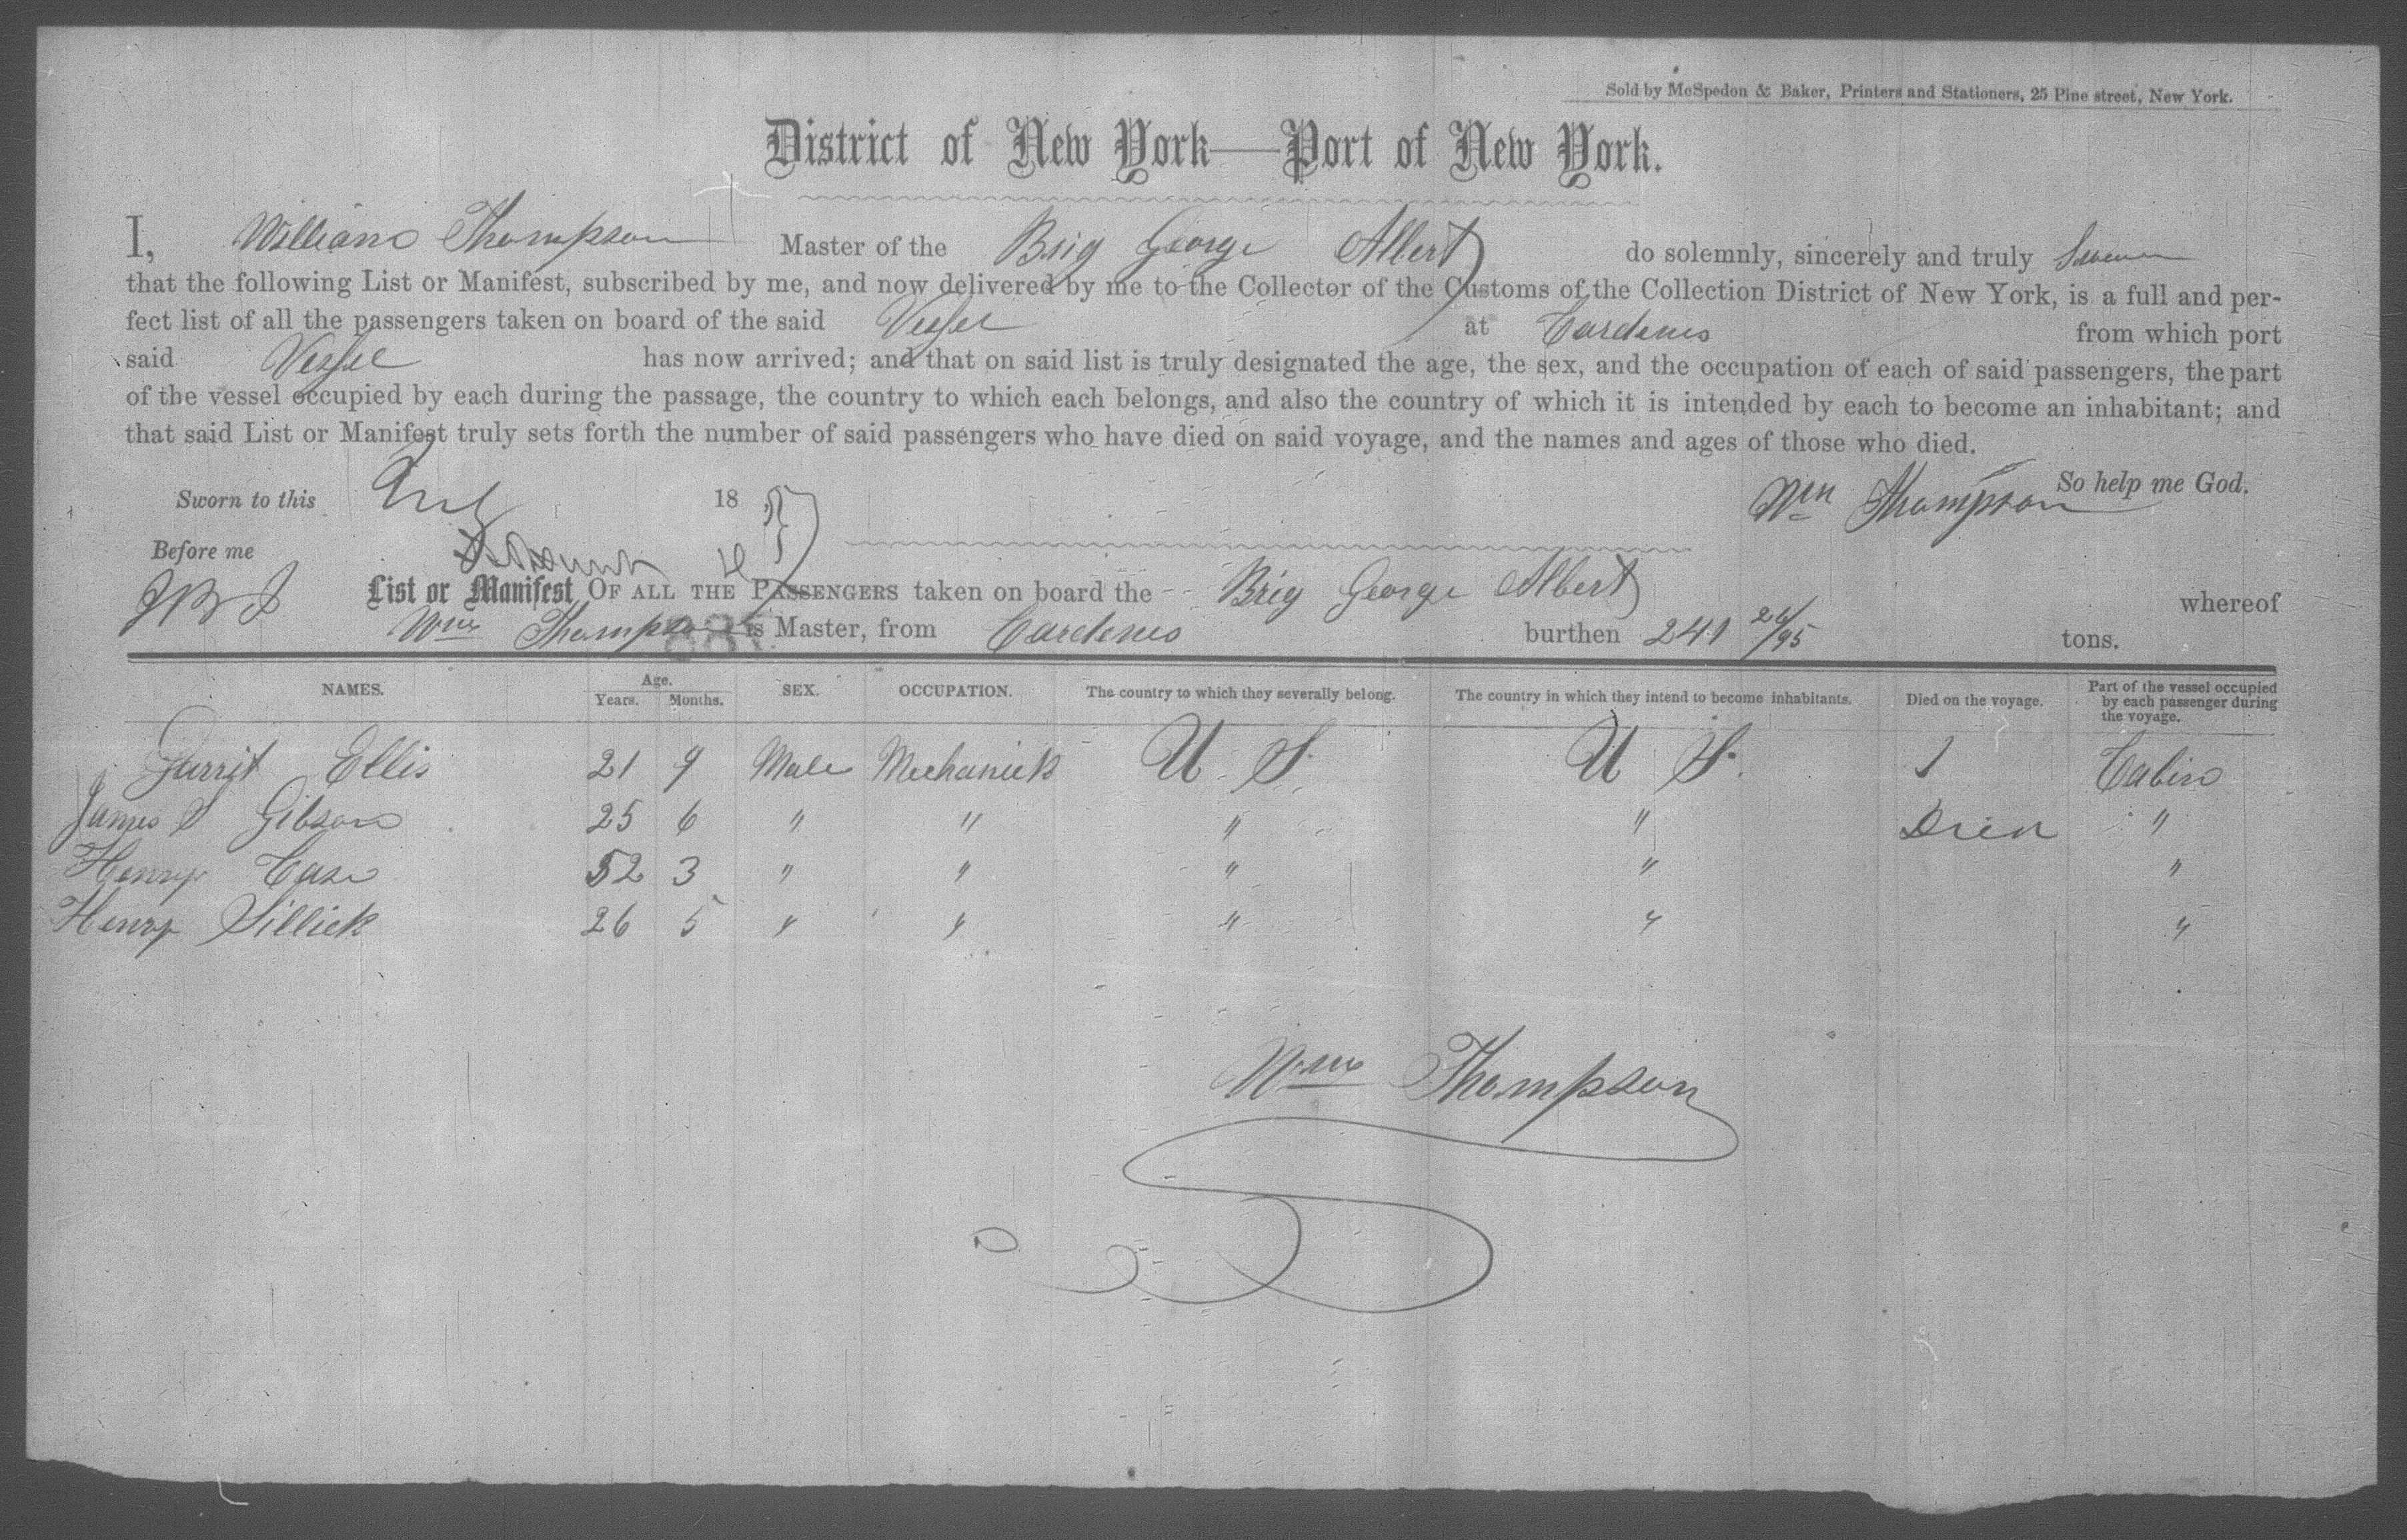 Sold by McSpedon & Baker, Printers and Stationers, 25 Pine street, New York.
District of New York—Port of New York.
I, William Thompson Master of the Brig George Albert do solemnly, sincerely and truly
that the following List or Manifest, subscribed by me, and now delivered by me to the Collector of the Customs of the Collection District of New York, is a full and per-
fect list of all the passengers taken on board of the said Vessel at Cardenas from which port
said Vessel has now arrived; and that on said list is truly designated the age, the sex, and the occupation of each of said passengers, the part
of the vessel occupied by each during the passage, the country to which each belongs, and also the country of which it is intended by each to become an inhabitant; and
that said List or Manifest truly sets forth the number of said passengers who have died on said voyage, and the names and ages of those who died.
So help me God.
Sworn to this 18 Wm Thompson
Before me
List or Manifest OF ALL THE PASSENGERS taken on board the Brig George Albert whereof
Wm Thompson is Master, from Cardenas burthen 241 26/95 tons.
NAMES. Age. Years. Months. SEX. OCCUPATION. The country to which they severally belong. The country in which they intend to become inhabitants. Died on the voyage. Part of the vessel occupied by each passenger during the voyage.
Garrit Ellis 21 9 Male Mechanick U S U S 1 Cabin
James S Gibson 25 6 " " " " "
Henry Case 52 3 " " " " "
Henry Sillick 26 5 " " " " "
Wm Thompson